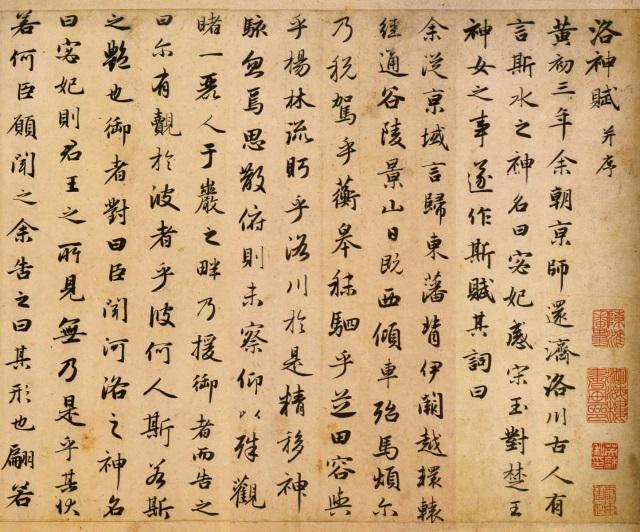 洛神賦 并序
黄初三年余朝京師還濟洛川古人有
言斯水之神名曰宓妃感宋玉對楚王
神女之事遂作斯賦其詞曰
余從京域言歸東藩背伊闕越轘轅
經通谷陵景山日既西傾車殆馬煩尔
乃税駕乎蘅皋秣駟乎芝田容與
乎楊林流眄乎洛川於是精移神
駭忽焉思散俯則未察仰以殊觀
睹一麗人于巖之畔乃援御者而告之
曰尔有覿於彼者乎彼何人斯若斯
之艷也御者對曰臣聞河洛之神名
曰宓妃則君王之所見無乃是乎其狀
若何臣願聞之余告之曰其形也翩若